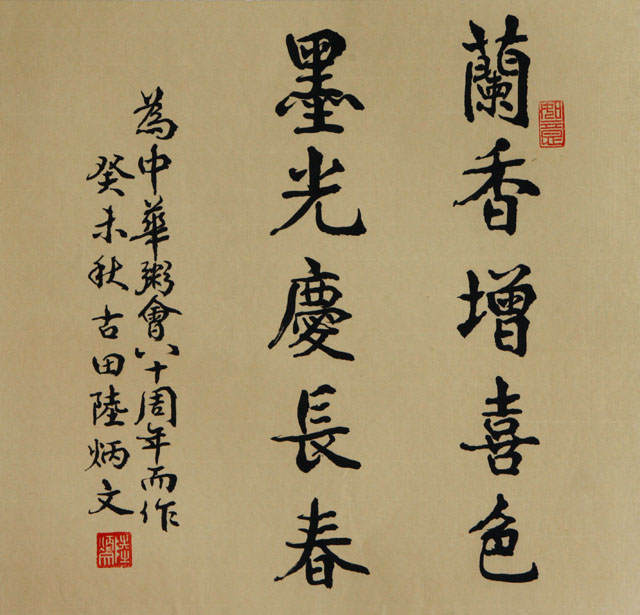 蘭香增喜色
墨光慶長春
為中華粥會八十周年而作
癸未秋古田陸炳文